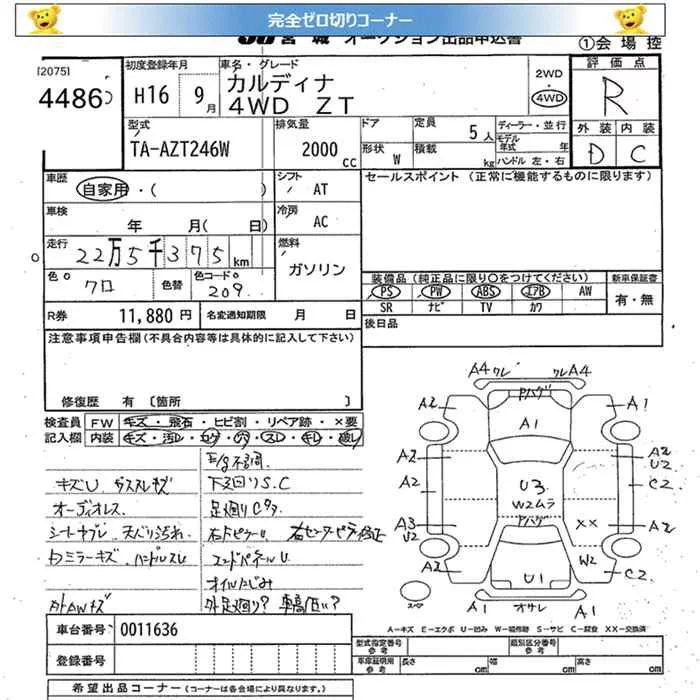 完全ゼロ切りコーナー
JU 宮城 オークション出品申込書 ①会場控
[2075]
4486
初度登録年月
H16 9月
車名・グレード
カルディナ
4WD ZT
2WD
4WD
評価点
R
型式
TA-AZT246W
排気量
2000cc
ドア
形状 W
定員 5人
積載 kg
ディーラー・並行
モデル年式 年
ハンドル 左・右
外装 内装
D C
車歴
自家用・( )
シフト
AT
セールスポイント (正常に機能するものに限ります)
車検
年 月( 日)
冷房
AC
走行
22万5千375km
燃料
ガソリン
色
クロ
色替
色コードNo
209
装備品 (純正品に限り○をつけてください)
PS PW ABS エアB AW
SR ナビ TV カワ
新車保証書
有・無
R券 11,880円
名変通知期限 月 日
後日品
注意事項申告欄 (不具合内容等は具体的に記入して下さい)
修復歴 有 〔箇所
検査員記入欄
FW キズ・飛石・ヒビ割・リペア跡・×要
内装 キズ・汚レ・コゲ・穴・スレ・キレ・破レ
E/g不調
キズU ガラスキズ 下廻りS.C
オーディオレス 足廻りCガタ
シートヤブレ 天バリ汚れ 右FピラーU 右センターピラー修正
ミラーキズ ハンドルスレ エンドパネルU
オイルにじみ
外AWキズ 外足廻り? 車高低い?
A4 ワレ ワレ A4
Fハゲ
A2 A1 A1
A2 A2
U2
A2 U3 C2
W2ムラ
A3 Fハゲ XX A2
U2
A2 W2
U1 C2
スペア
A1 オサレ A1
A-キズ E-エクボ U-凹み W-補修跡 S-サビ C-腐食 XX-交換済
車台番号 0011636
登録番号
型式指定番号
参考
類別区分番号
参考
車庫証明用
参考
長さ cm 幅 cm 高さ cm
希望出品コーナー (コーナーは各会場により異なります。)